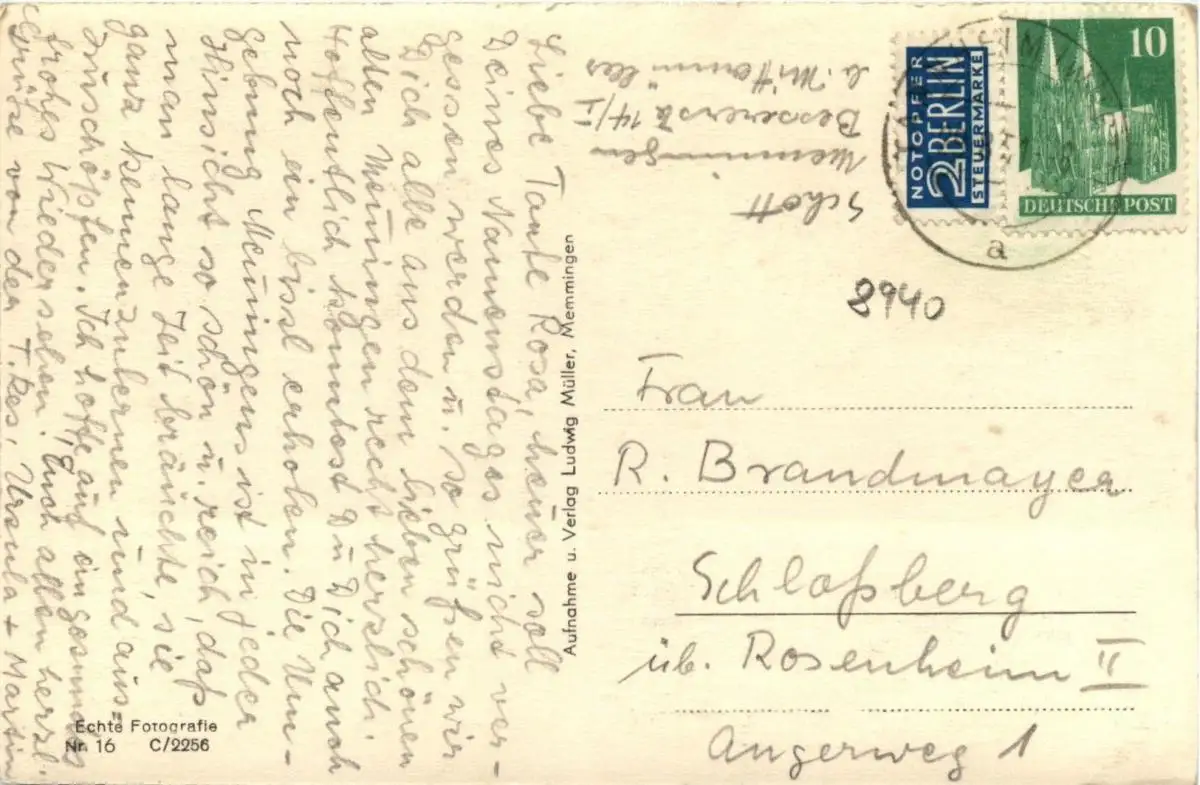 Liebe Tante Rosa, heuer soll
Deines Namenstages nicht ver-
gessen werden u. so grüßen wir
Dich alle aus dem lieben schönen
alten Memmingen recht herzlich.
Hoffentlich konntest Du Dich auch
noch ein bissl erholen. Die Um-
gebung Memmingens ist in jeder
Hinsicht so schön u. reich, daß
man lange Zeit bräuchte, sie
ganz kennenzulernen und aus-
zuschöpfen. Ich hoffe auf ein gesundes
frohes Wiedersehen. Euch allen herzl.
Grüße von der T. Res, Ursula + Martin
Schott
Memmingen
Besererstr 14/I
b. Mittermüller
Aufnahme u. Verlag Ludwig Müller, Memmingen
NOTOPFER
2 BERLIN
STEUERMARKE
10
DEUTSCHE POST
a
8940
Frau
R. Brandmayer
Schloßberg
üb. Rosenheim II
Angerweg 1
Echte Fotografie
Nr. 16 C/2256